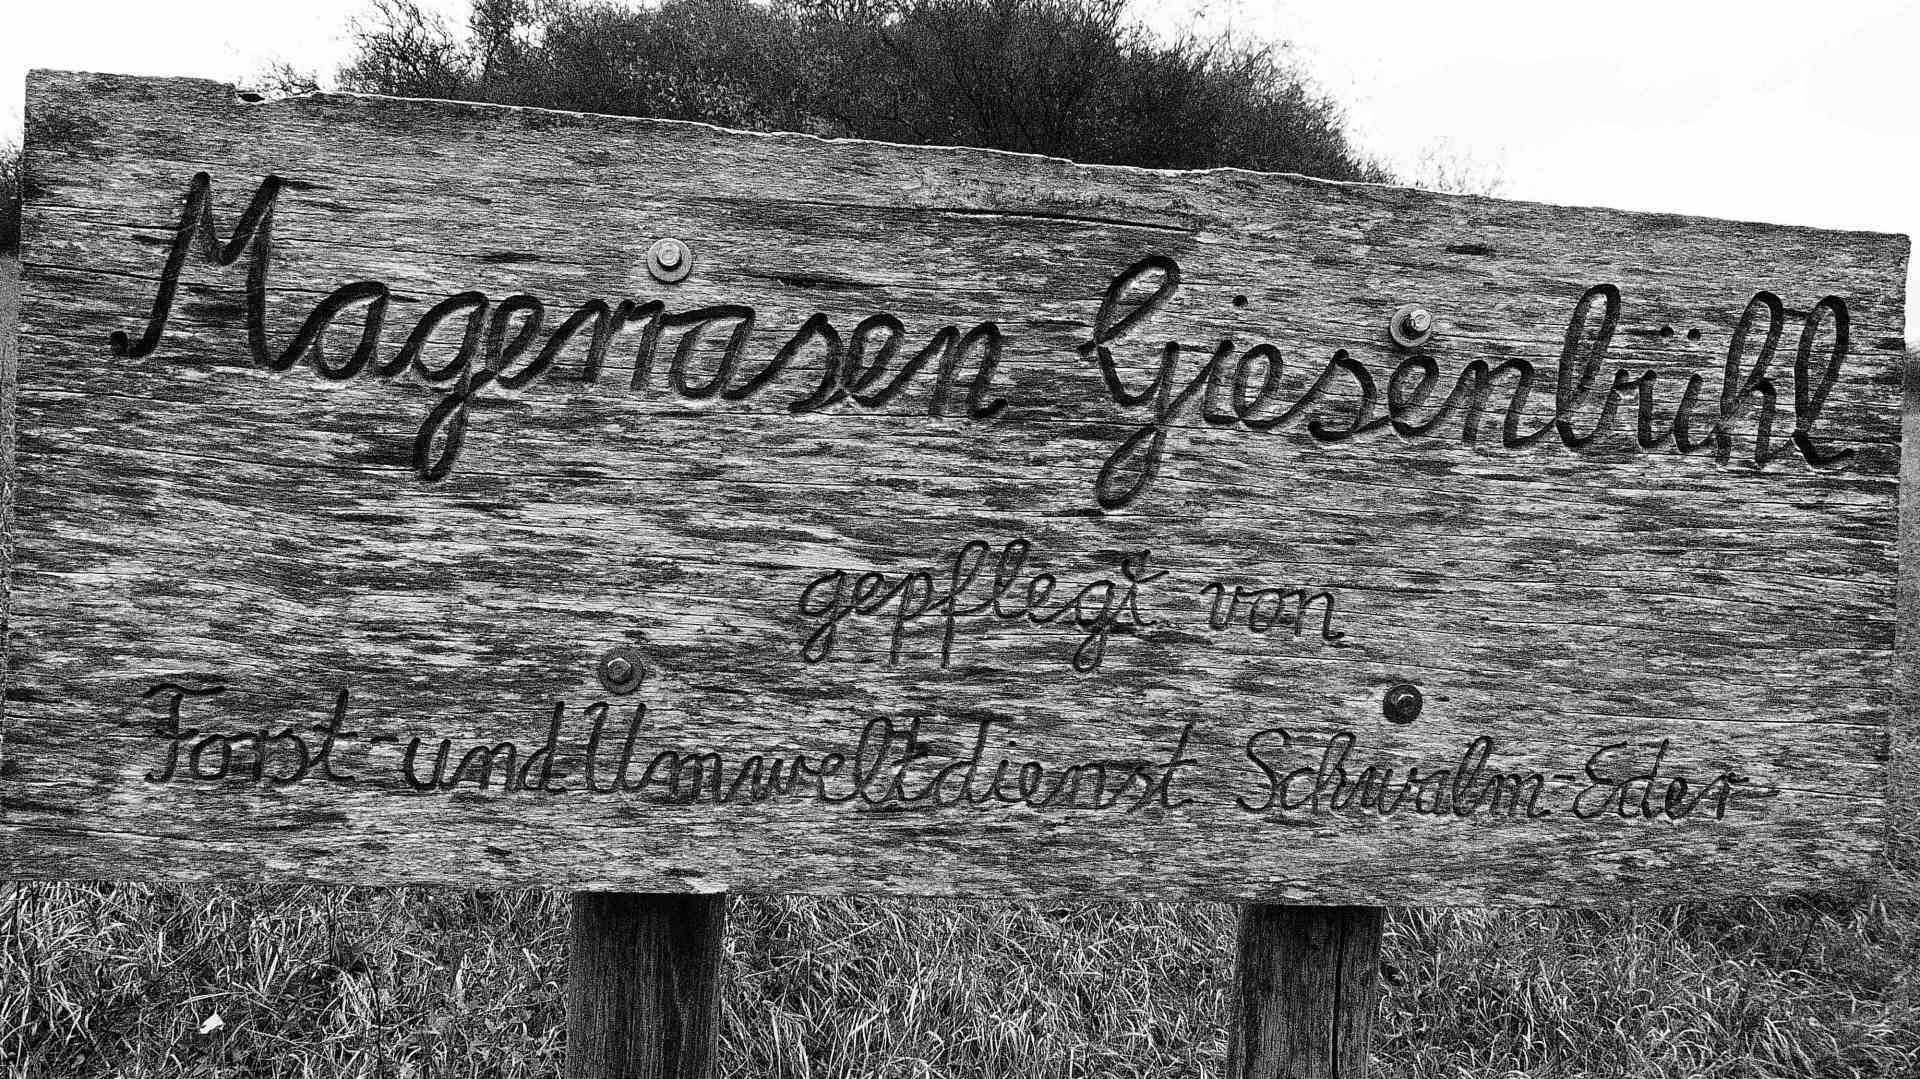 Magerrasen Giesenbühl
gepflegt von
Forst- und Umweltdienst Schwalm-Eder